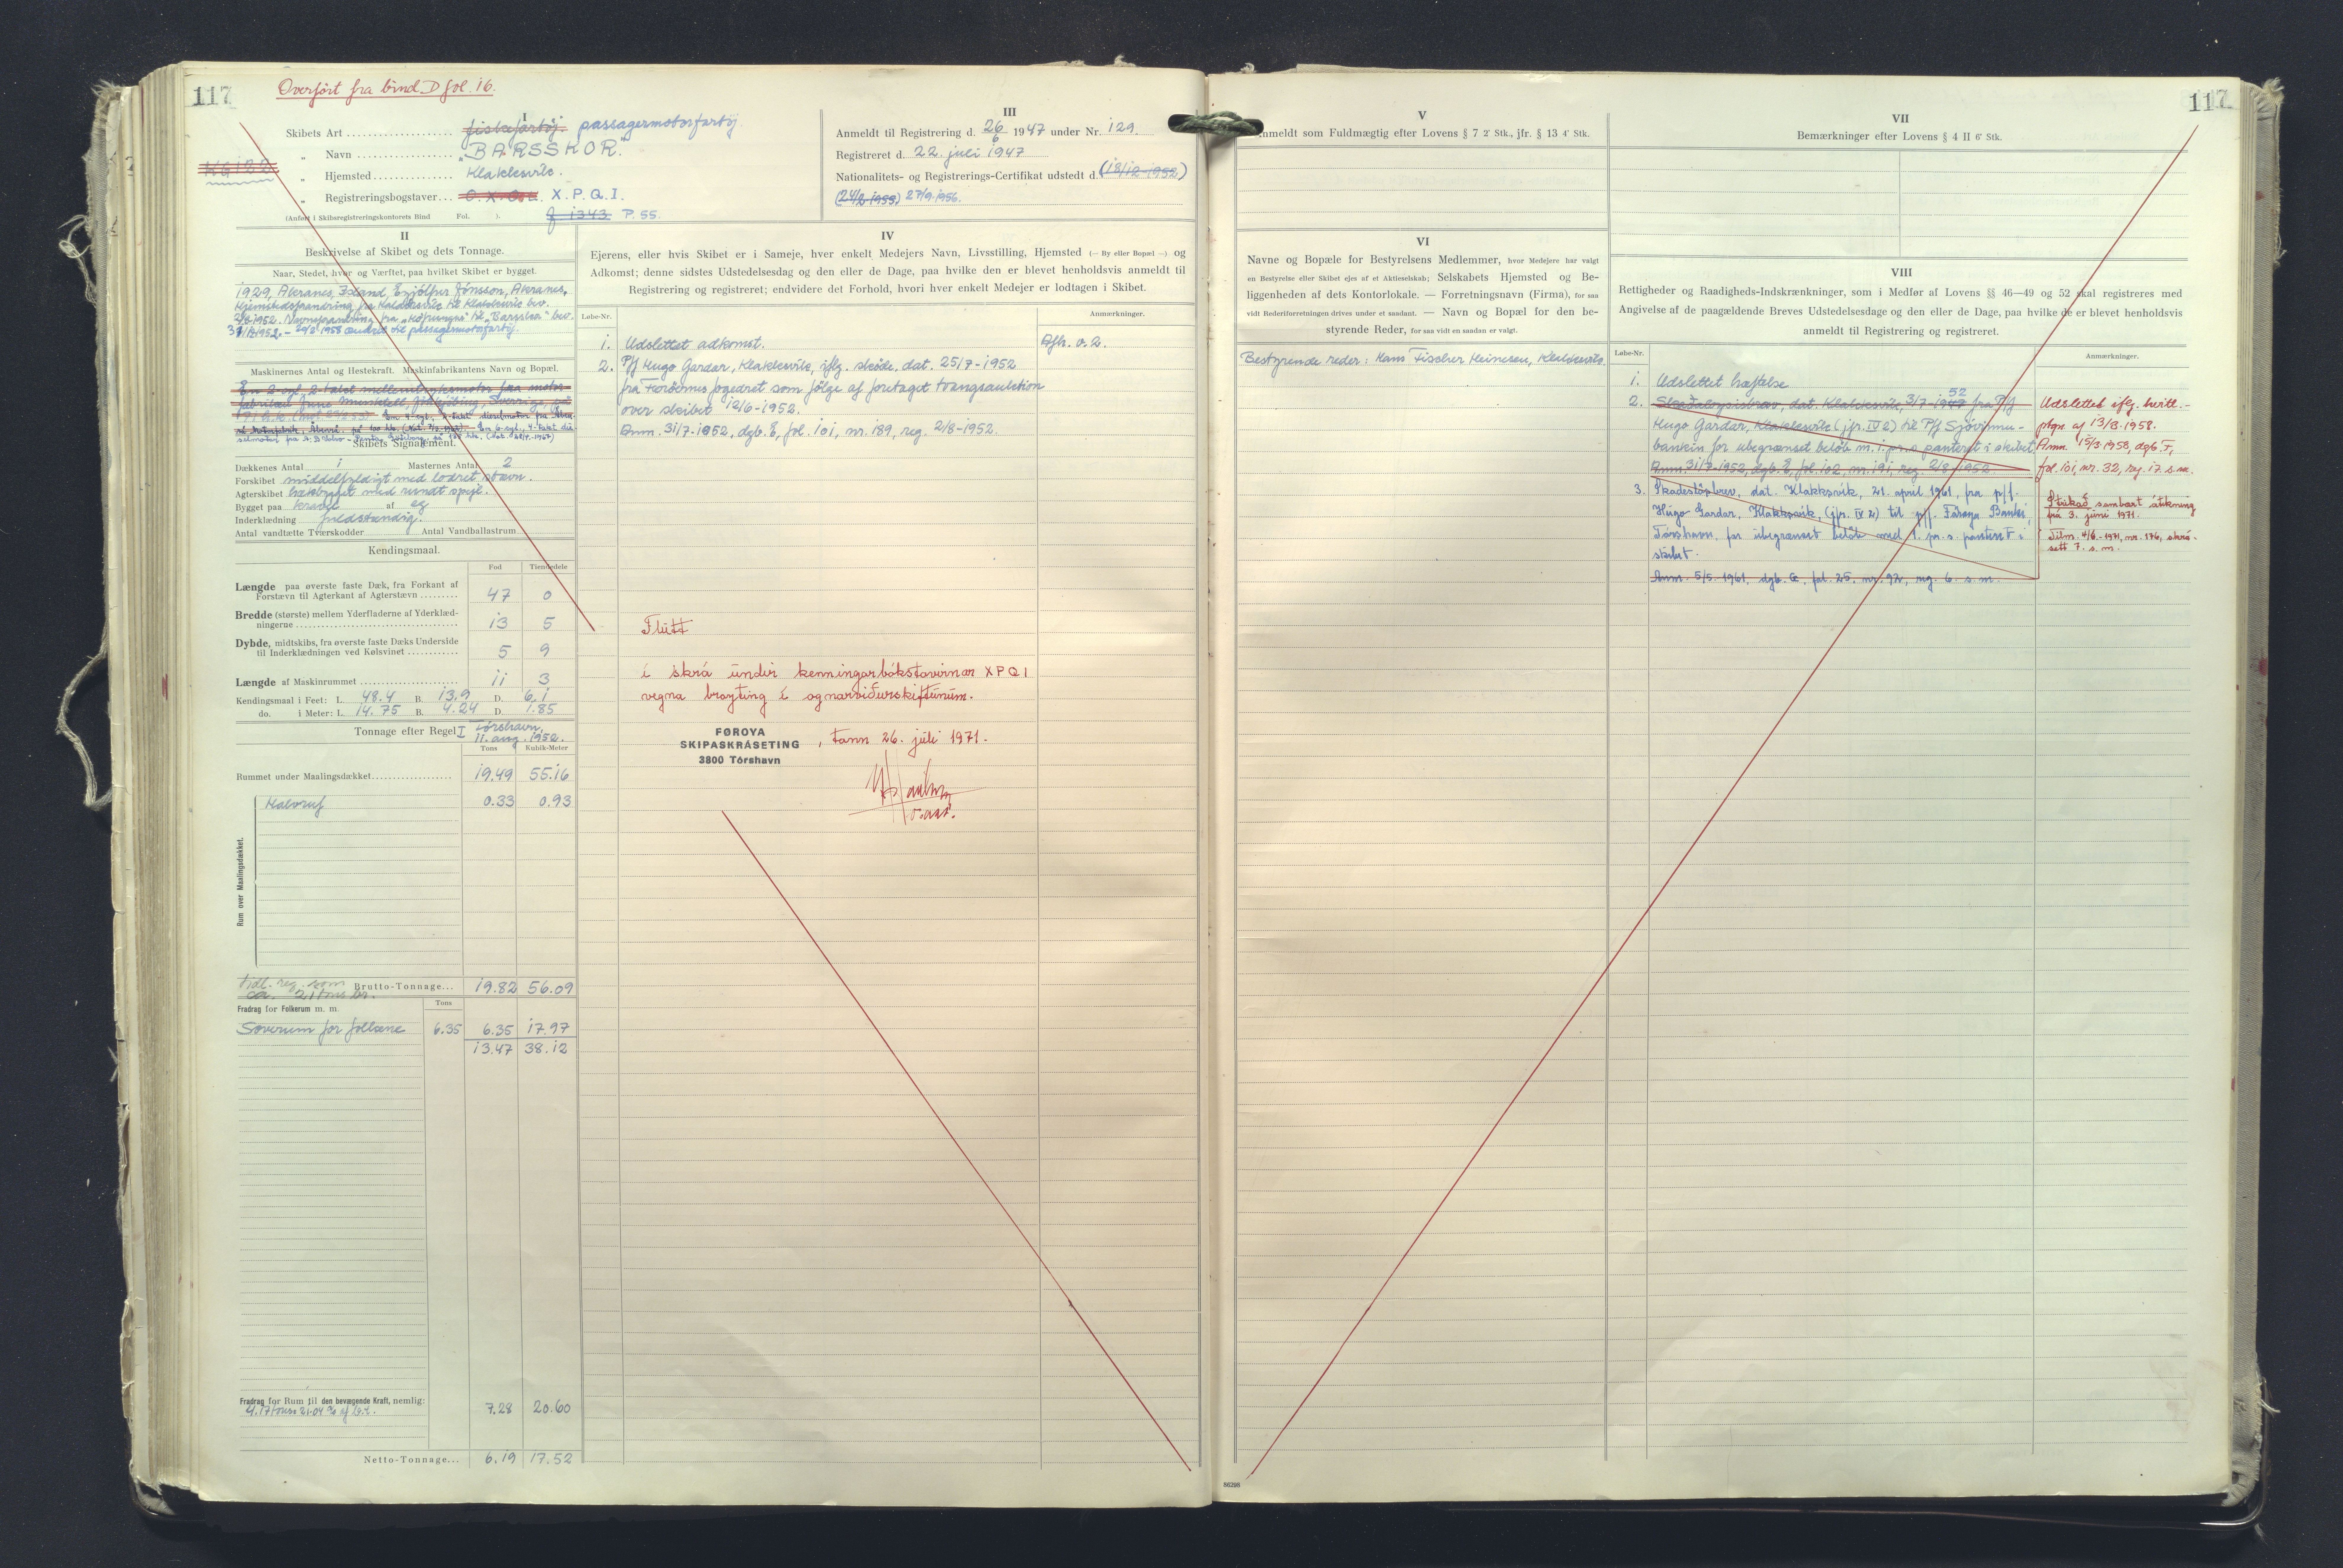 117
Overført fra bind D fol. 16.
I
Skibets Art fiskefartøj. passagermotorfartøj.
„ Navn "BARSSKOR."
„ Hjemsted Klaksvik.
„ Registreringsbogstaver X.P.Q.I.
(Anført i Skibsregistreringskontorets Bind Fol. f 1343 P. 55.
III
Anmeldt til Registrering d. 26/6 1947 under Nr. 129.
Registreret d. 22. juli 1947
Nationalitets- og Registrerings-Certifikat udstedt d. (18/12-1952)
(24/2 1955) 27/9-1956.
II
Beskrivelse af Skibet og dets Tonnage.
Naar, Stedet, hvor og Værftet, paa hvilket Skibet er bygget.
1929, Akranes, Island, Eyjólfur Jónsson, Akranes,
Hjemstedsforandring fra Haldersvik til Klaksvik bev.
Navneforandring fra til "Barsskor" bev.
1952. - 20/2 1958 ændret til passagermotorfartøj.
Maskinernes Antal og Hestekraft. Maskinfabrikantens Navn og Bopæl.
En 2 cyl. 2 takt mellemtryksmotor fra motor-
fabriken June Munktell, Jönköbing, Sverrige, på
Skibets Signalement.
Dækkenes Antal 1 Masternes Antal 2
Forskibet middelfyldigt med lodret stævn.
Agterskibet med rundt spejl.
Bygget paa kravel af eg
Inderklædning fuldstændig.
Antal vandtætte Tværskodder Antal Vandballastrum
Kendingsmaal.
Fod Tiendedele
Længde paa øverste faste Dæk, fra Forkant af
Forstævn til Agterkant af Agterstævn 47 0
Bredde (største) mellem Yderfladerne af Yderklæd-
ningerne 13 5
Dybde, midtskibs, fra øverste faste Dæks Underside
til Inderklædningen ved Kølsvinet 5 9
Længde af Maskinrummet 11 3
Kendingsmaal i Feet: L. 48.4 B. 13.9 D. 6.1
do. i Meter: L. 14.75 B. 4.24 D. 1.85
Tonnage efter Regel I Tórshavn,
11. aug. 1952.
Tons Kubik-Meter
Rummet under Maalingsdækket 19.49 55.16
Rum over Maalingsdækket.
Halvruf 0.33 0.93
tidl. reg. som Brutto-Tonnage... 19.82 56.09
ca. 21 tons br.
Fradrag for Folkerum m. m. Tons
Soverum for folkene 6.35 6.35 17.97
13.47 38.12
Fradrag for Rum til den bevægende Kraft, nemlig:
4.17 tons = 21.04 % af b.t. 7.28 20.60
Netto-Tonnage... 6.19 17.52
IV
Ejerens, eller hvis Skibet er i Sameje, hver enkelt Medejers Navn, Livsstilling, Hjemsted (— By eller Bopæl —) og
Adkomst; denne sidstes Udstedelsesdag og den eller de Dage, paa hvilke den er blevet henholdsvis anmeldt til
Registrering og registreret; endvidere det Forhold, hvori hver enkelt Medejer er lodtagen i Skibet.
Løbe-Nr. Anmærkninger.
1. Udslettet adkomst. Afh. v. 2.
2. P/f Hugo Gardar, Klaksvik, iflg. skøde, dat. 25/7-1952
fra Færøernes fogedret som følge af foretaget tvangsauktion
over skibet 12/6-1952.
Anm. 31/7-1952, dgb. E, fol. 101, nr. 189, reg. 2/8-1952.
Flutt
í skrá undir kenningarbókstavirnar XPQI
vegna broyting í ognarviðurskiftunum.
FØROYA
SKIPASKRÁSETING
3800 Tórshavn
, tann 26. júli 1971.
V
Anmeldt som Fuldmægtig efter Lovens § 7 2' Stk., jfr. § 13 4' Stk.
VI
Navne og Bopæle for Bestyrelsens Medlemmer, hvor Medejere har valgt
en Bestyrelse eller Skibet ejes af et Aktieselskab; Selskabets Hjemsted og Be-
liggenheden af dets Kontorlokale. — Forretningsnavn (Firma), for saa
vidt Rederiforretningen drives under et saadant. — Navn og Bopæl for den be-
styrende Reder, for saa vidt en saadan er valgt.
Bestyrende reder: Hans Fischer Heinesen, Klaksvik.
117
VII
Bemærkninger efter Lovens § 4 II 6' Stk.
VIII
Rettigheder og Raadigheds-Indskrænkninger, som i Medfør af Lovens §§ 46—49 og 52 skal registreres med
Angivelse af de paagældende Breves Udstedelsesdag og den eller de Dage, paa hvilke de er blevet henholdsvis
anmeldt til Registrering og registreret.
Løbe-Nr. Anmærkninger.
1. Udslettet hæftelse
2. Skaðaloysisbrøv, dat. Klaksvik, 3/7-1952 fra P/f
Hugo Gardar, Klaksvik (jfr. IV 2) til P/f Sjóvinnu-
bankin for ubegrænset beløb m. 1. pr. s. panteret i skibet.
Anm. 31/7-1952, dgb. E, fol. 102, nr. 191, reg. 2/8-1952
Udslettet iflg. kvitt.-
ptgn. af 13/3-1958.
Anm. 15/3-1958, dgb. F,
fol. 101, nr. 32, reg. 17. s.m.
3. Skadesløsbrev, dat. Klakksvík, 21. april 1961, fra p/f.
Hugo Gardar, Klakksvík, (jfr. IV 2) til p/f. Føroya Banki,
Tórshavn, for ubegrænset beløb med 1. pr. s. panteret i
skibet.
Anm. 5/5-1961, dgb. G, fol. 25, nr. 92, reg. 6. s. m.
Strikað sambært áteknning
frá 3. juni 1971.
Tilm. 4/6-1971, nr. 176, skrá-
sett 7. s. m.